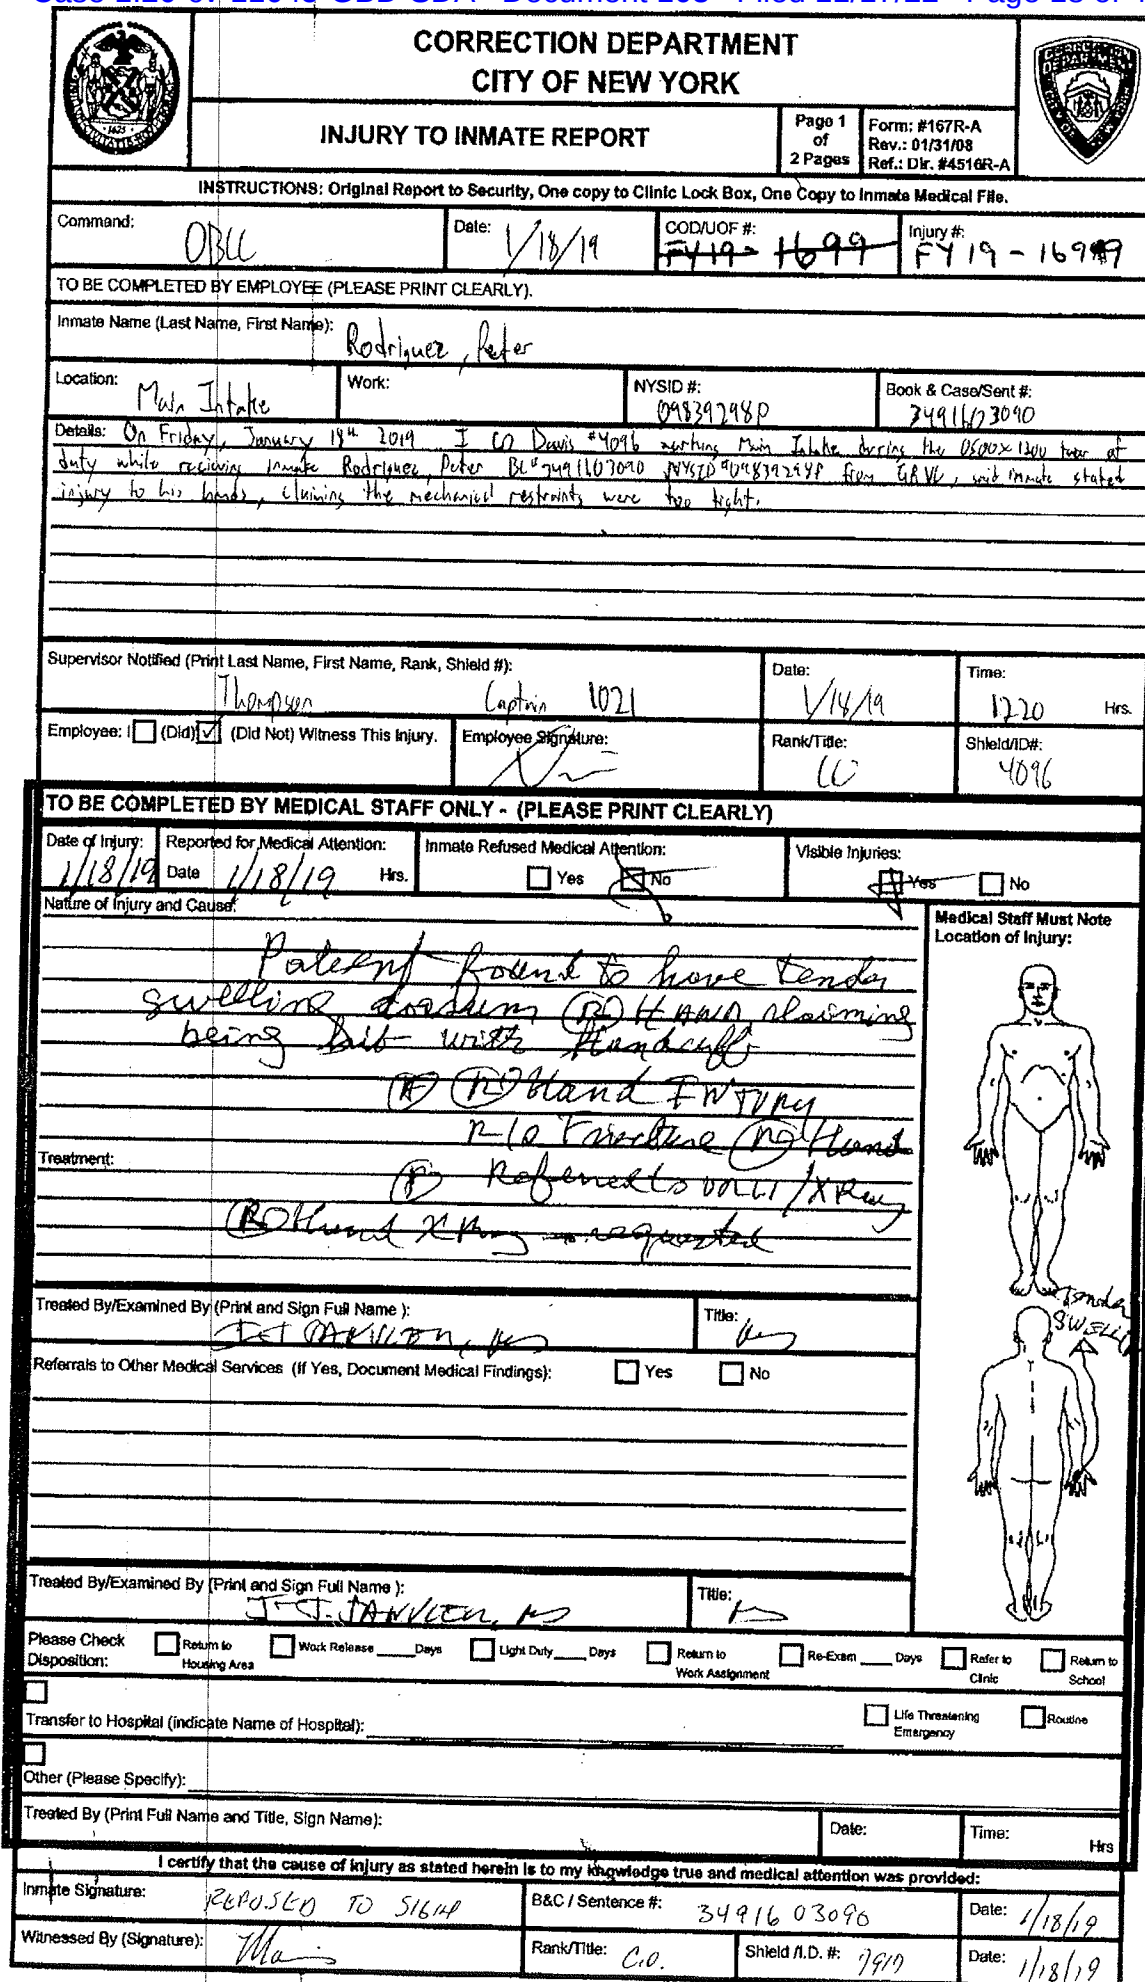 CORRECTION DEPARTMENT
CITY OF NEW YORK
INJURY TO INMATE REPORT
Page 1
of
2 Pages
Form: #167R-A
Rev.: 01/31/08
Ref.: Dir. #4516R-A
INSTRUCTIONS: Original Report to Security, One copy to Clinic Lock Box, One Copy to Inmate Medical File.
Command: OBCC
Date: 1/18/19
COD/UOF #: FY19- 1699
Injury #: FY 19 - 1699
TO BE COMPLETED BY EMPLOYEE (PLEASE PRINT CLEARLY).
Inmate Name (Last Name, First Name): Rodriguez, Peter
Location: Main Intake
Work:
NYSID #: 09839298P
Book & Case/Sent #: 3491603090
Details: On Friday, January 18th 2019 I CO Davis #4096 working Main Intake during the 0500x1300 tour of
duty while recieving inmate Rodriguez, Peter NYSID #09839298P from GRVC, said inmate stated
injury to his hands, claiming the mechanical restraints were too tight.
Supervisor Notified (Print Last Name, First Name, Rank, Shield #): Thompson Captain 1021
Date: 1/18/19
Time: 1220 Hrs.
Employee: I (Did) (Did Not) Witness This Injury.
Employee Signature:
Rank/Title: CO
Shield/ID#: 4096
TO BE COMPLETED BY MEDICAL STAFF ONLY - (PLEASE PRINT CLEARLY)
Date of Injury: 1/18/19
Reported for Medical Attention:
Date 1/18/19 Hrs.
Inmate Refused Medical Attention:
Yes No
Visible Injuries:
Yes No
Nature of Injury and Cause:
Patient found to have tender
swelling dorsum (R) HAND claiming
being hit with Handcuff
(A) (R) Hand INJURY
R/O Fracture (R) Hand
Treatment:
(P) Referred to /XRay
(R) Hand XRay requested
Medical Staff Must Note
Location of Injury:
Tender
Swelling
Treated By/Examined By (Print and Sign Full Name ):
Title:
Referrals to Other Medical Services (If Yes, Document Medical Findings): Yes No
Treated By/Examined By (Print and Sign Full Name ): J-J. JANVIER, MD
Title: MD
Please Check
Disposition:
Return to
Housing Area
Work Release ____ Days
Light Duty ____ Days
Return to
Work Assignment
Re-Exam ____ Days
Refer to
Clinic
Return to
School
Transfer to Hospital (indicate Name of Hospital):
Life Threatening
Emergency
Routine
Other (Please Specify):
Treated By (Print Full Name and Title, Sign Name):
Date:
Time: Hrs
I certify that the cause of injury as stated herein is to my knowledge true and medical attention was provided:
Inmate Signature: REFUSED TO SIGN
B&C / Sentence #: 34916 03090
Date: 1/18/19
Witnessed By (Signature):
Rank/Title: C.O.
Shield /I.D. #:
Date: 1/18/19